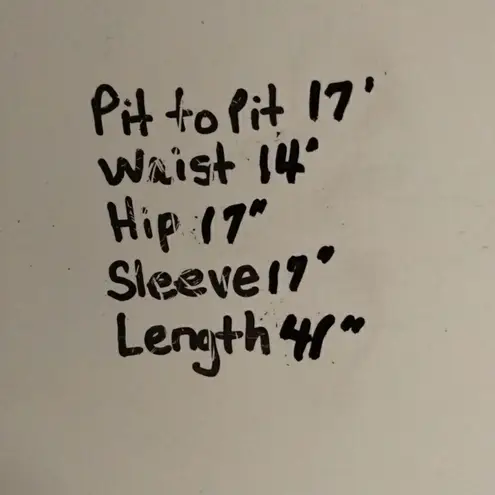 Pit to Pit 17'
Waist 14"
Hip 17"
Sleeve 17"
Length 41"